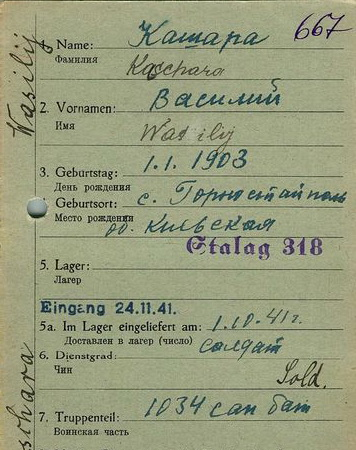 667
1. Name: Кашара
Фамилия Kaschara
2. Vornamen: Василий
Имя Wasilij
3. Geburtstag: 1.1.1903
День рождения
Geburtsort: с. Горностайполь
Место рождения об. Киевская
Stalag 318
5. Lager:
Лагерь
Eingang 24.11.41.
5a. Im Lager eingeliefert am: 1.10.41г.
Доставлен в лагерь (число)
6. Dienstgrad: солдат
Чин Sold.
7. Truppenteil: 1034 сан бат
Воинская часть
Wasilij
schara